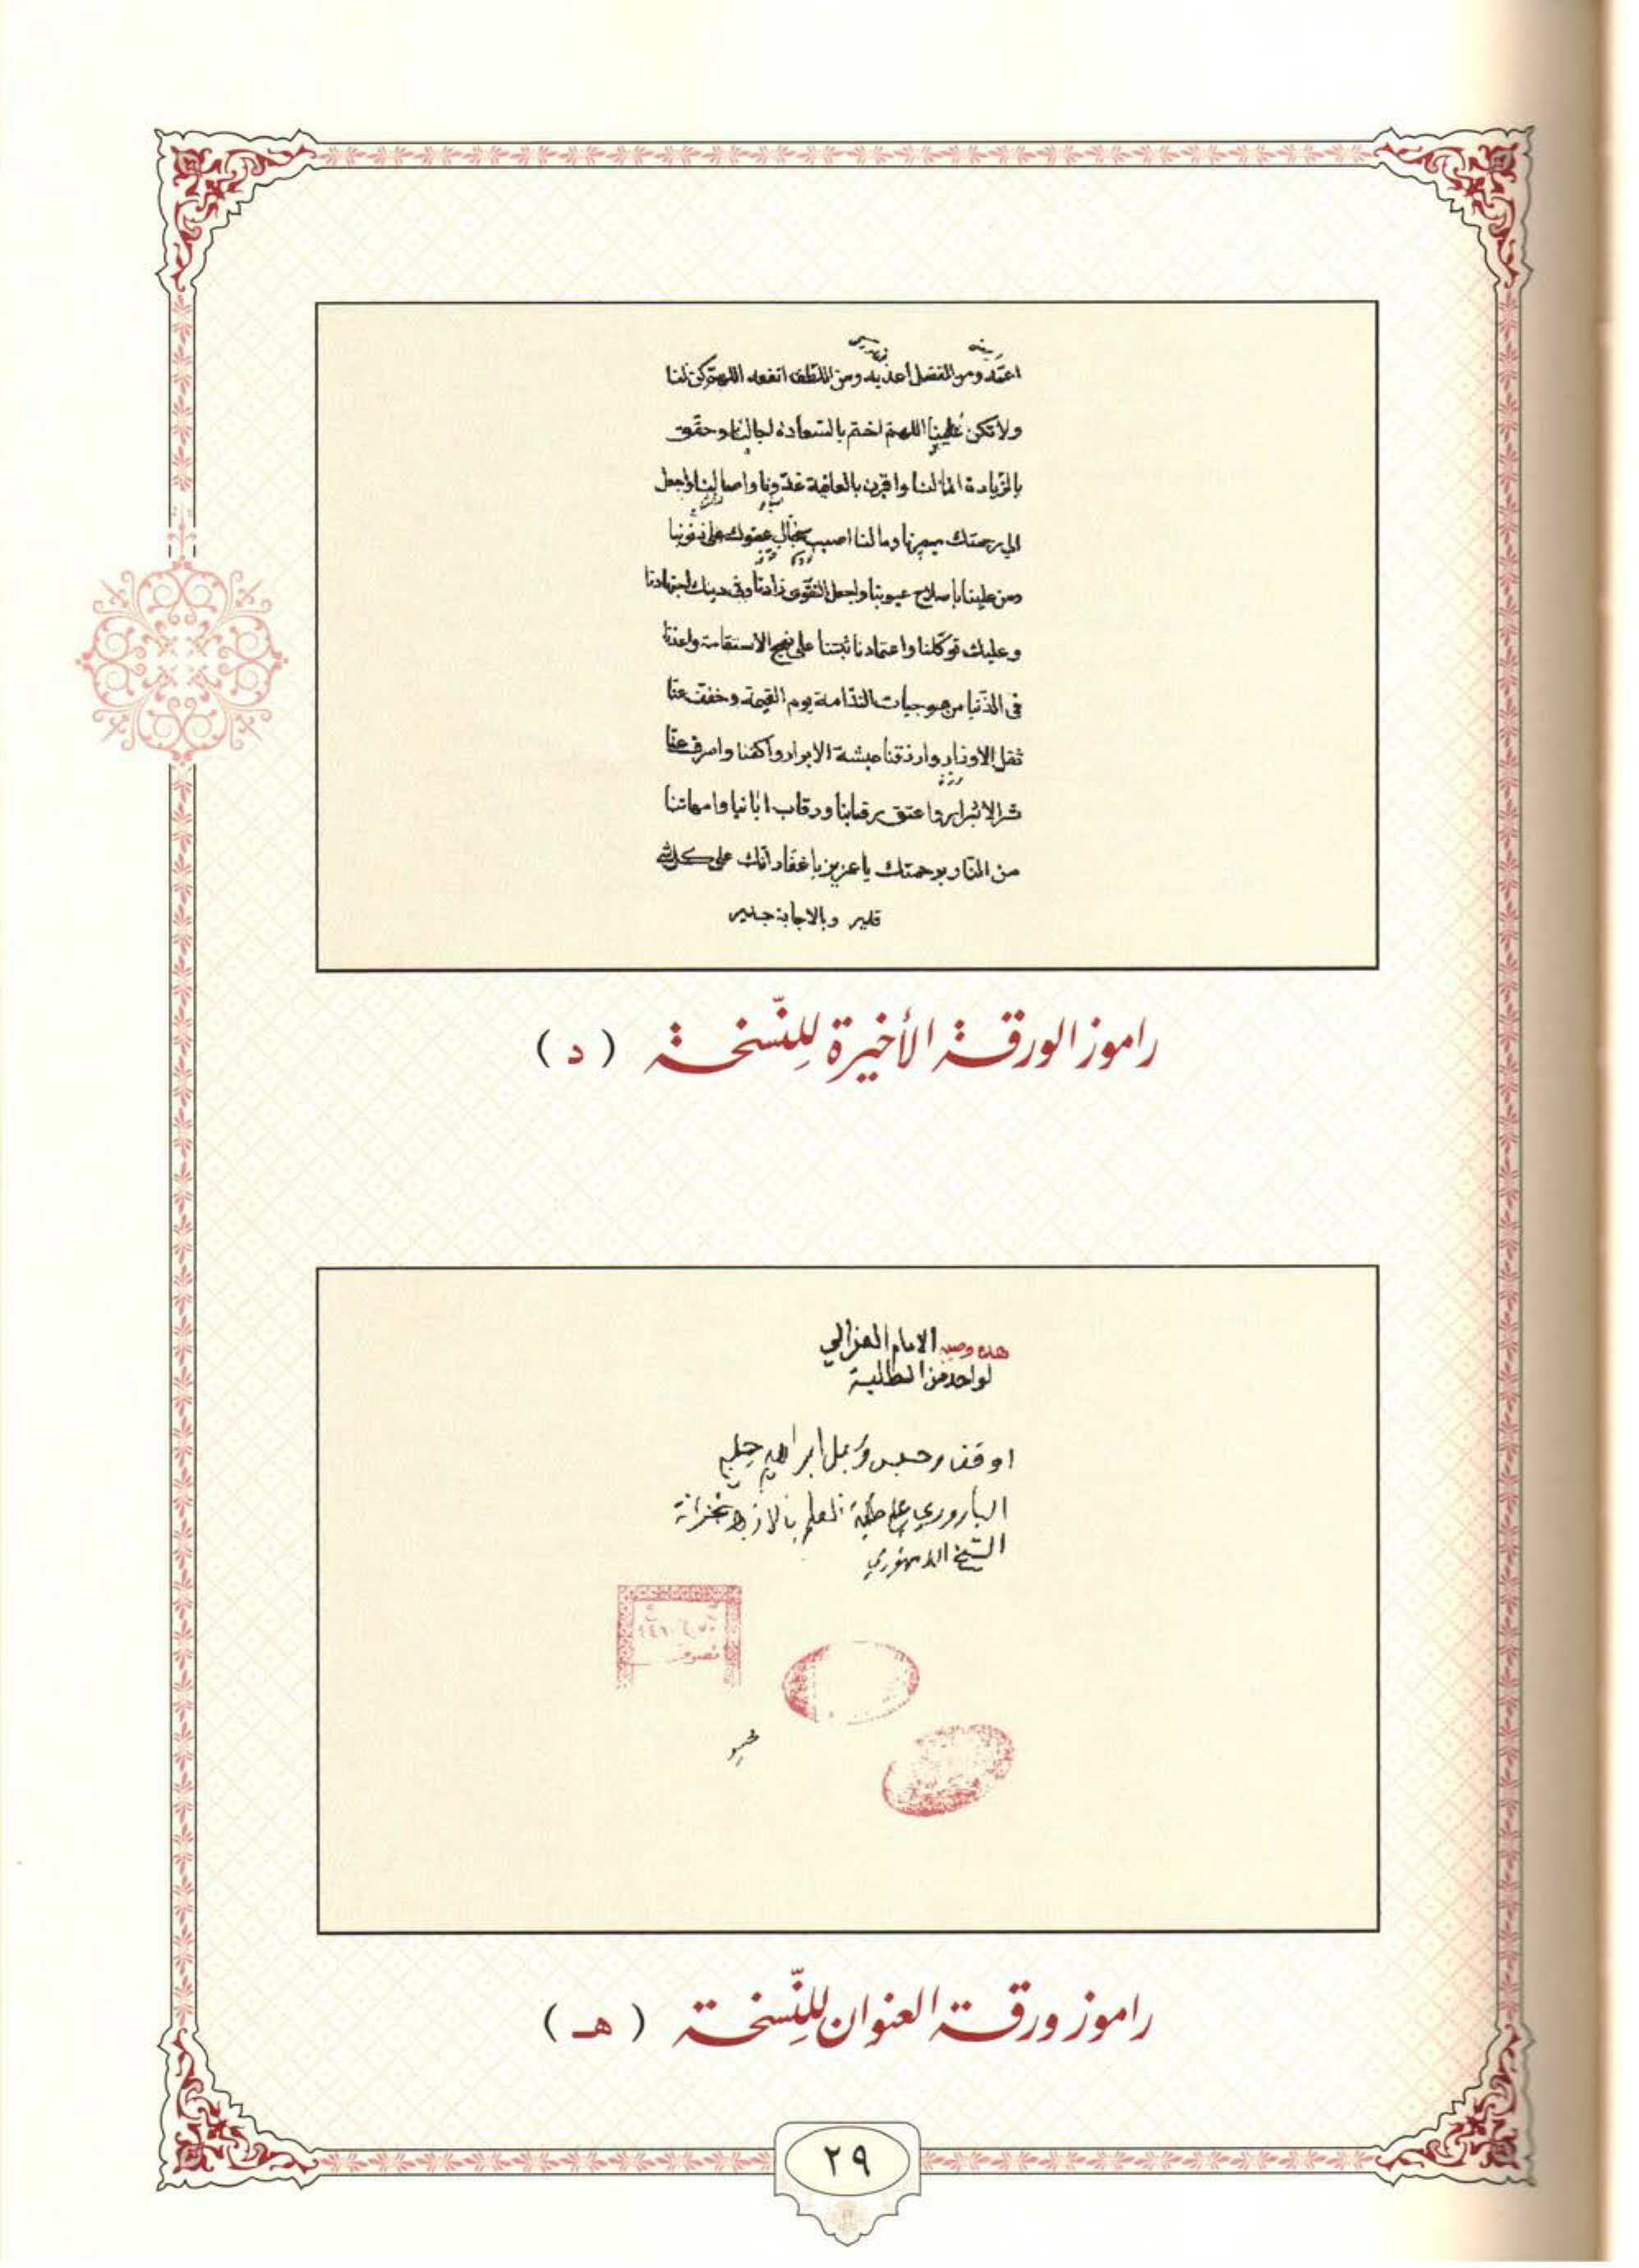 اعمّه ومن الفضل أعذبه ومن اللطف انفعه اللهمّ كن لنا
ولا تكن علينا اللهم اختم بالسعادة اجالنا وحقق
بالزّيادة امالنا واقرن بالعافية غدّونا واصالنا واجعل
الي رحمتك ميصرنا ومالنا اصبب سجال عفوك على ذنوبنا
ومن علينا باصلاح عيوبنا واجعل التقوّى زادنا وفى دينك اجتهادنا
وعليك توكّلنا واعتمادنا ثبتنا على نهج الاستقامة واعذنا
في الدّنيا من موجبات النّدامة يوم القيمة وخفف عنّا
ثقل الاوزار وارزقنا عيشة الابرار واكفنا واصرف عنّا
شر الاشرار واعتق رقابنا ورقاب ابائنا وامهاتنا
من النّار برحمتك يا عزيز يا غفار انّك على كل شئ
قدير وبالاجابة جدير
راموز الورقة الأخيرة للنّسخة ( د )
هذه وصية الامام الغزالي
لواحد من الطلبة
اوقف وحبس وسبل ابراهيم جلبي
الباروري على طلبة العلم بالازهر بخزانة
الشيخ الدمنهوري
تصوف
راموز ورقة العنوان للنّسخة ( هـ )
٢٩